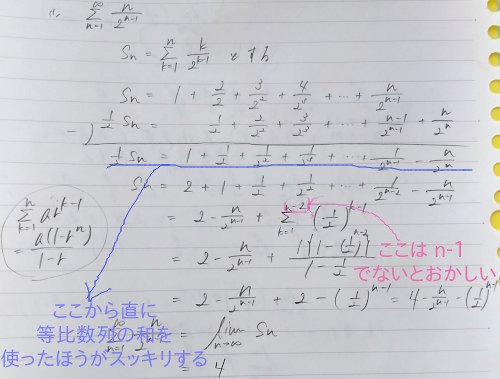 (1) \sum_{n=1}^{\infty} \frac{n}{2^{n-1}}
S_n = \sum_{k=1}^{n} \frac{k}{2^{k-1}} とすると
S_n = 1 + \frac{2}{2} + \frac{3}{2^2} + \frac{4}{2^3} + \cdots + \frac{n}{2^{n-1}}
-) \frac{1}{2} S_n = \frac{1}{2} + \frac{2}{2^2} + \frac{3}{2^3} + \cdots + \frac{n-1}{2^{n-1}} + \frac{n}{2^n}
\frac{1}{2} S_n = 1 + \frac{1}{2} + \frac{1}{2^2} + \frac{1}{2^3} + \cdots + \frac{1}{2^{n-1}} - \frac{n}{2^n}
S_n = 2 + 1 + \frac{1}{2} + \frac{1}{2^2} + \cdots + \frac{1}{2^{n-2}} - \frac{n}{2^{n-1}}
= 2 - \frac{n}{2^{n-1}} + \sum_{k=1}^{n-2} (\frac{1}{2})^{k-1}
\sum_{k=1}^{n} ar^{k-1}
= \frac{a(1-r^n)}{1-r}
= 2 - \frac{n}{2^{n-1}} + \frac{1\{1-(\frac{1}{2})^{n-2}\}}{1-\frac{1}{2}}
ここは n-1
でないとおかしい
= 2 - \frac{n}{2^{n-1}} + 2 - (\frac{1}{2})^{n-1} = 4 - \frac{n}{2^{n-1}} - (\frac{1}{2})^{n-1}
ここから直に
等比数列の和を
使ったほうがスッキリする
= \lim_{n→∞} S_n
= 4